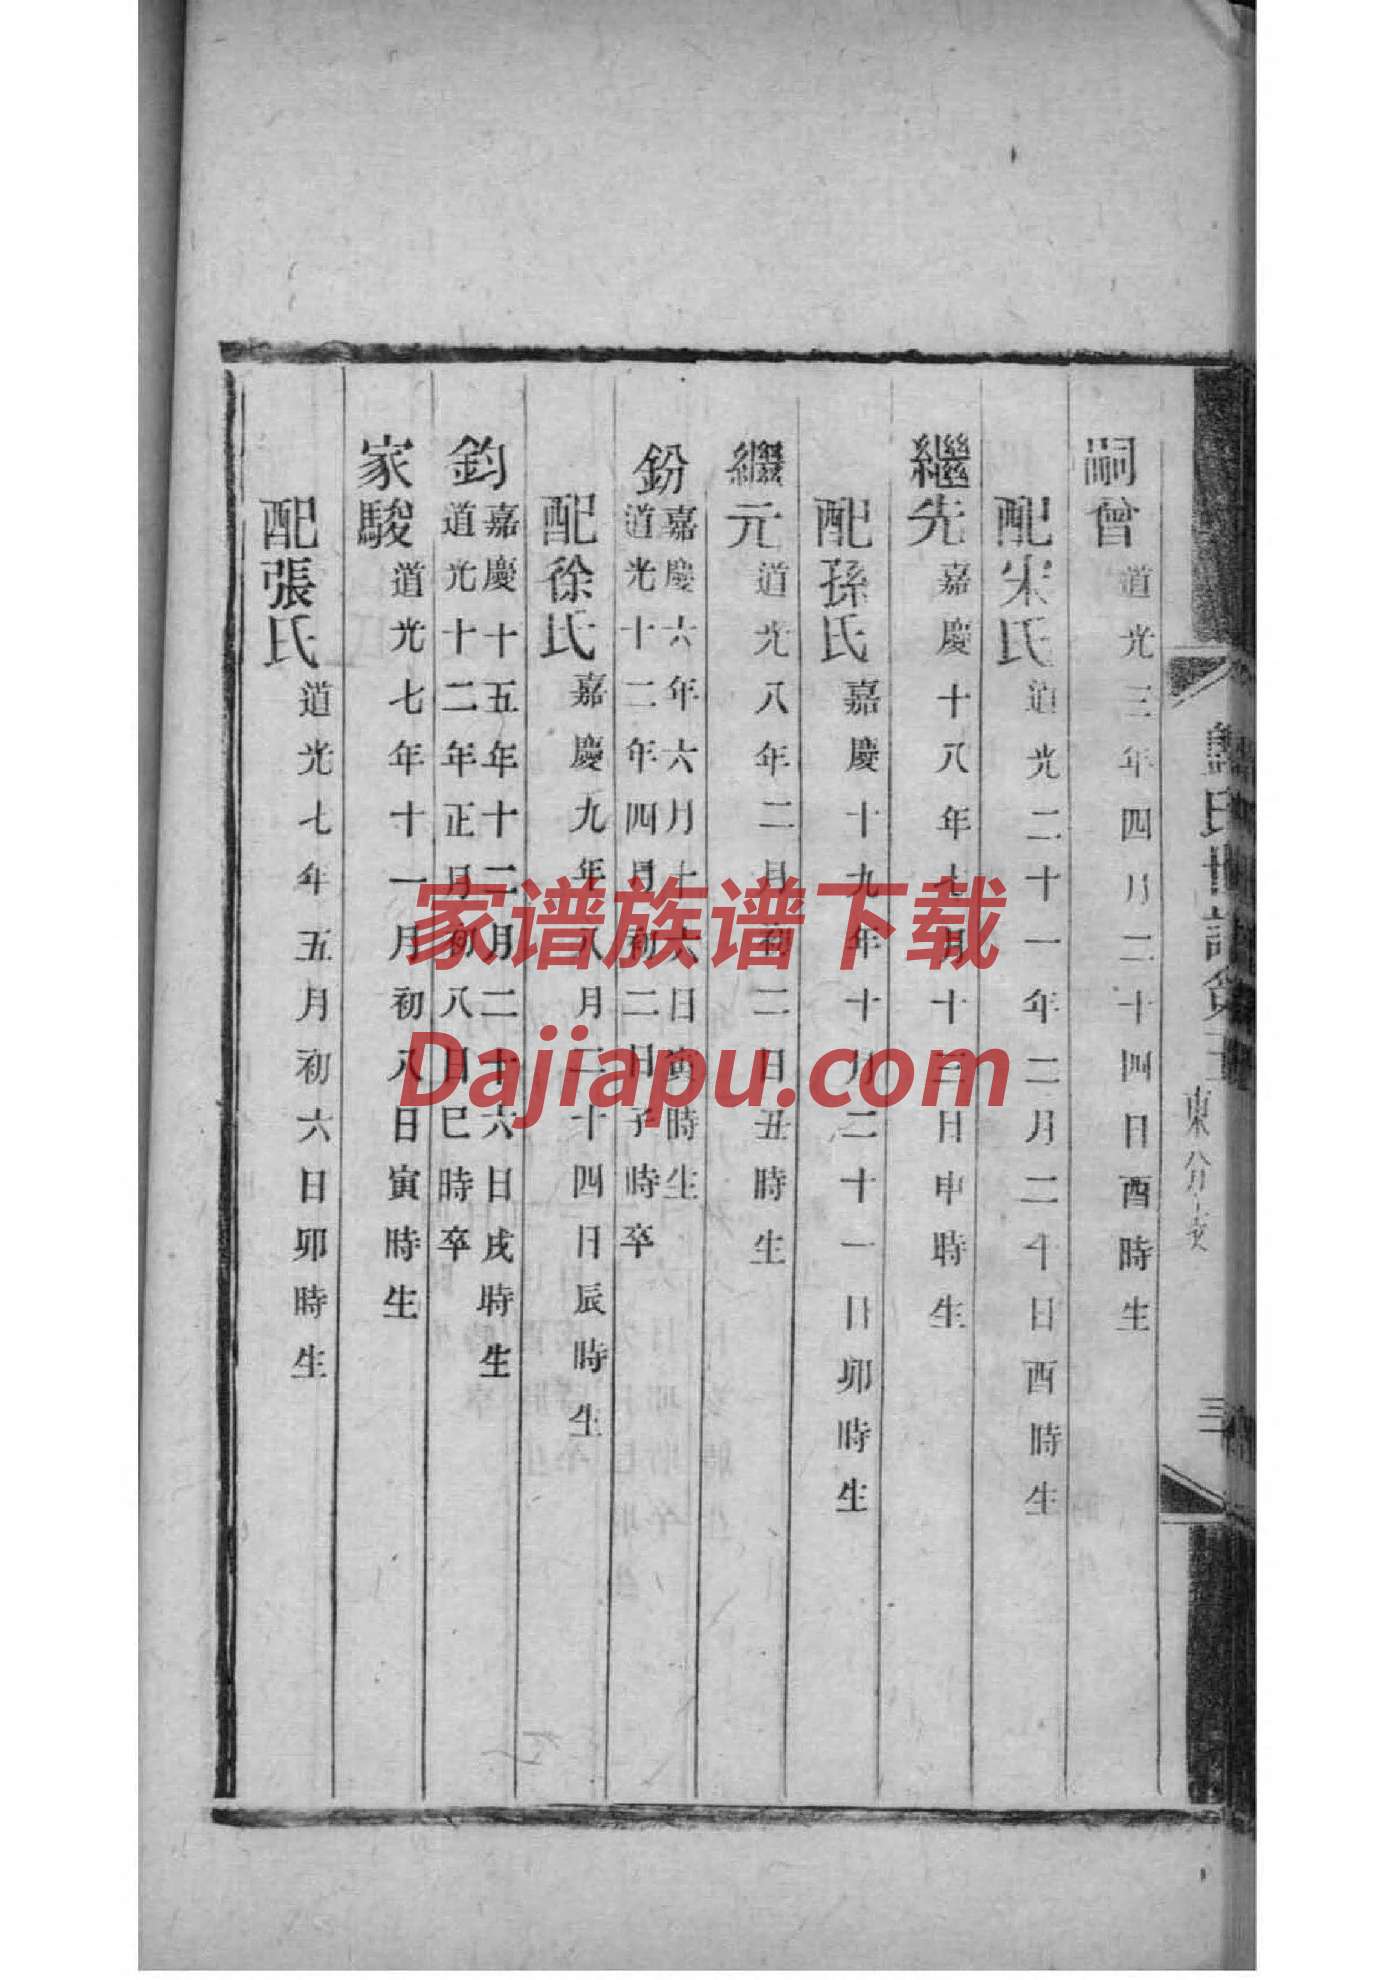 嗣曾道光三年四月二十四日酉時生
配宋氏道光二十一年二月二十日酉時生
繼先嘉慶十八年七月十三日申時生
配孫氏嘉慶十九年十月二十一日卯時生
繼元道光八年二月初二日丑時生
鈖嘉慶六年六月十六日寅時生
道光十二年四月初二日子時卒
配徐氏嘉慶九年八月二十四日辰時生
鈞嘉慶十五年十二月二十六日戌時生
道光十二年正月初八日巳時卒
家駿道光七年十一月初八日寅時生
配張氏道光七年五月初六日卯時生
家谱族谱下载
Dajiapu.com
氏世譜
東分
三